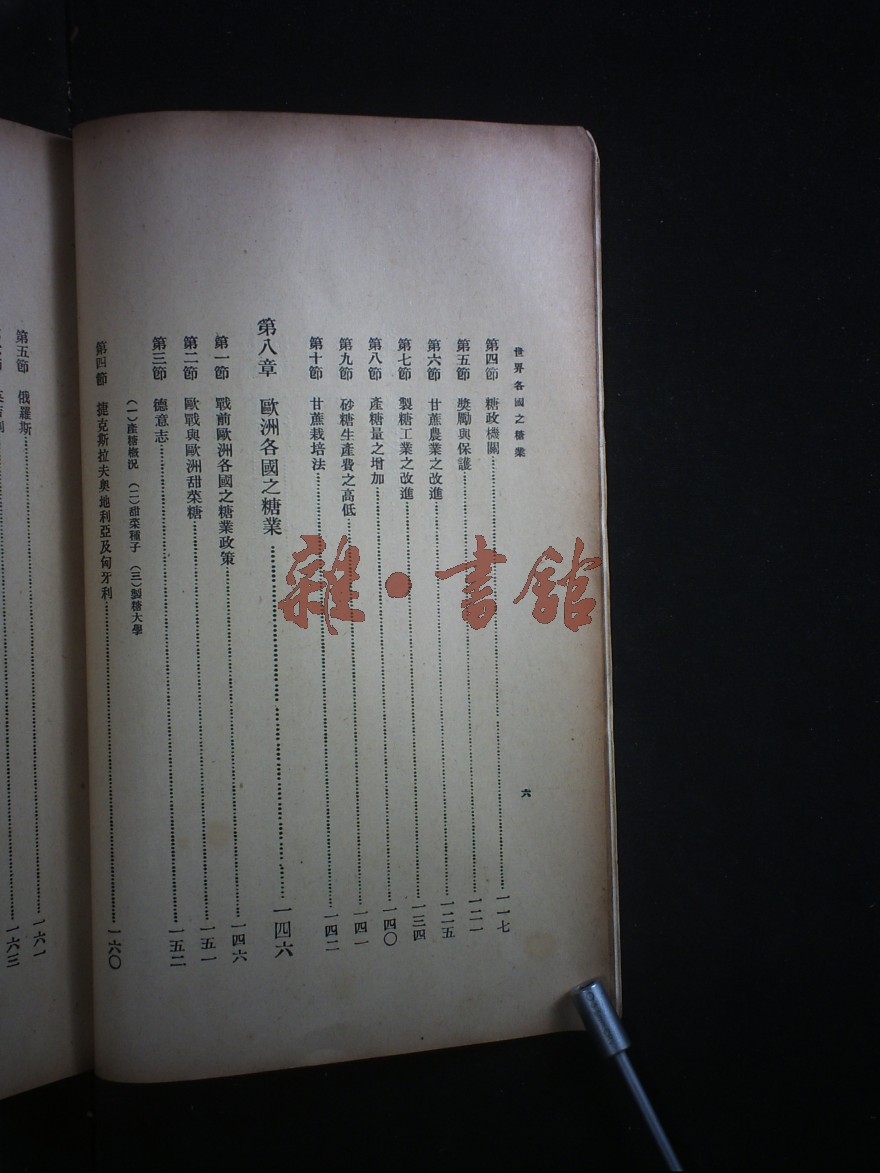 世界各國之糖業
六
第四節 糖政機關……一一七
第五節 獎勵與保護……一二一
第六節 甘蔗農業之改進……一二五
第七節 製糖工業之改進……一三四
第八節 產糖量之增加……一四〇
第九節 砂糖生產費之高低……一四一
第十節 甘蔗栽培法……一四二
第八章 歐洲各國之糖業……一四六
第一節 戰前歐洲各國之糖業政策……一四六
第二節 歐戰與歐洲甜菜糖……一五一
第三節 德意志……一五二
(一)產糖概況 (二)甜菜種子 (三)製糖大學
第四節 捷克斯拉夫奧地利亞及匈牙利……一六〇
第五節 俄羅斯……一六一
一六三
雜·書館